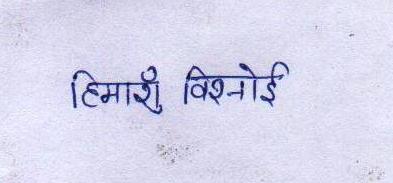 हिमाशुँ विश्नोई